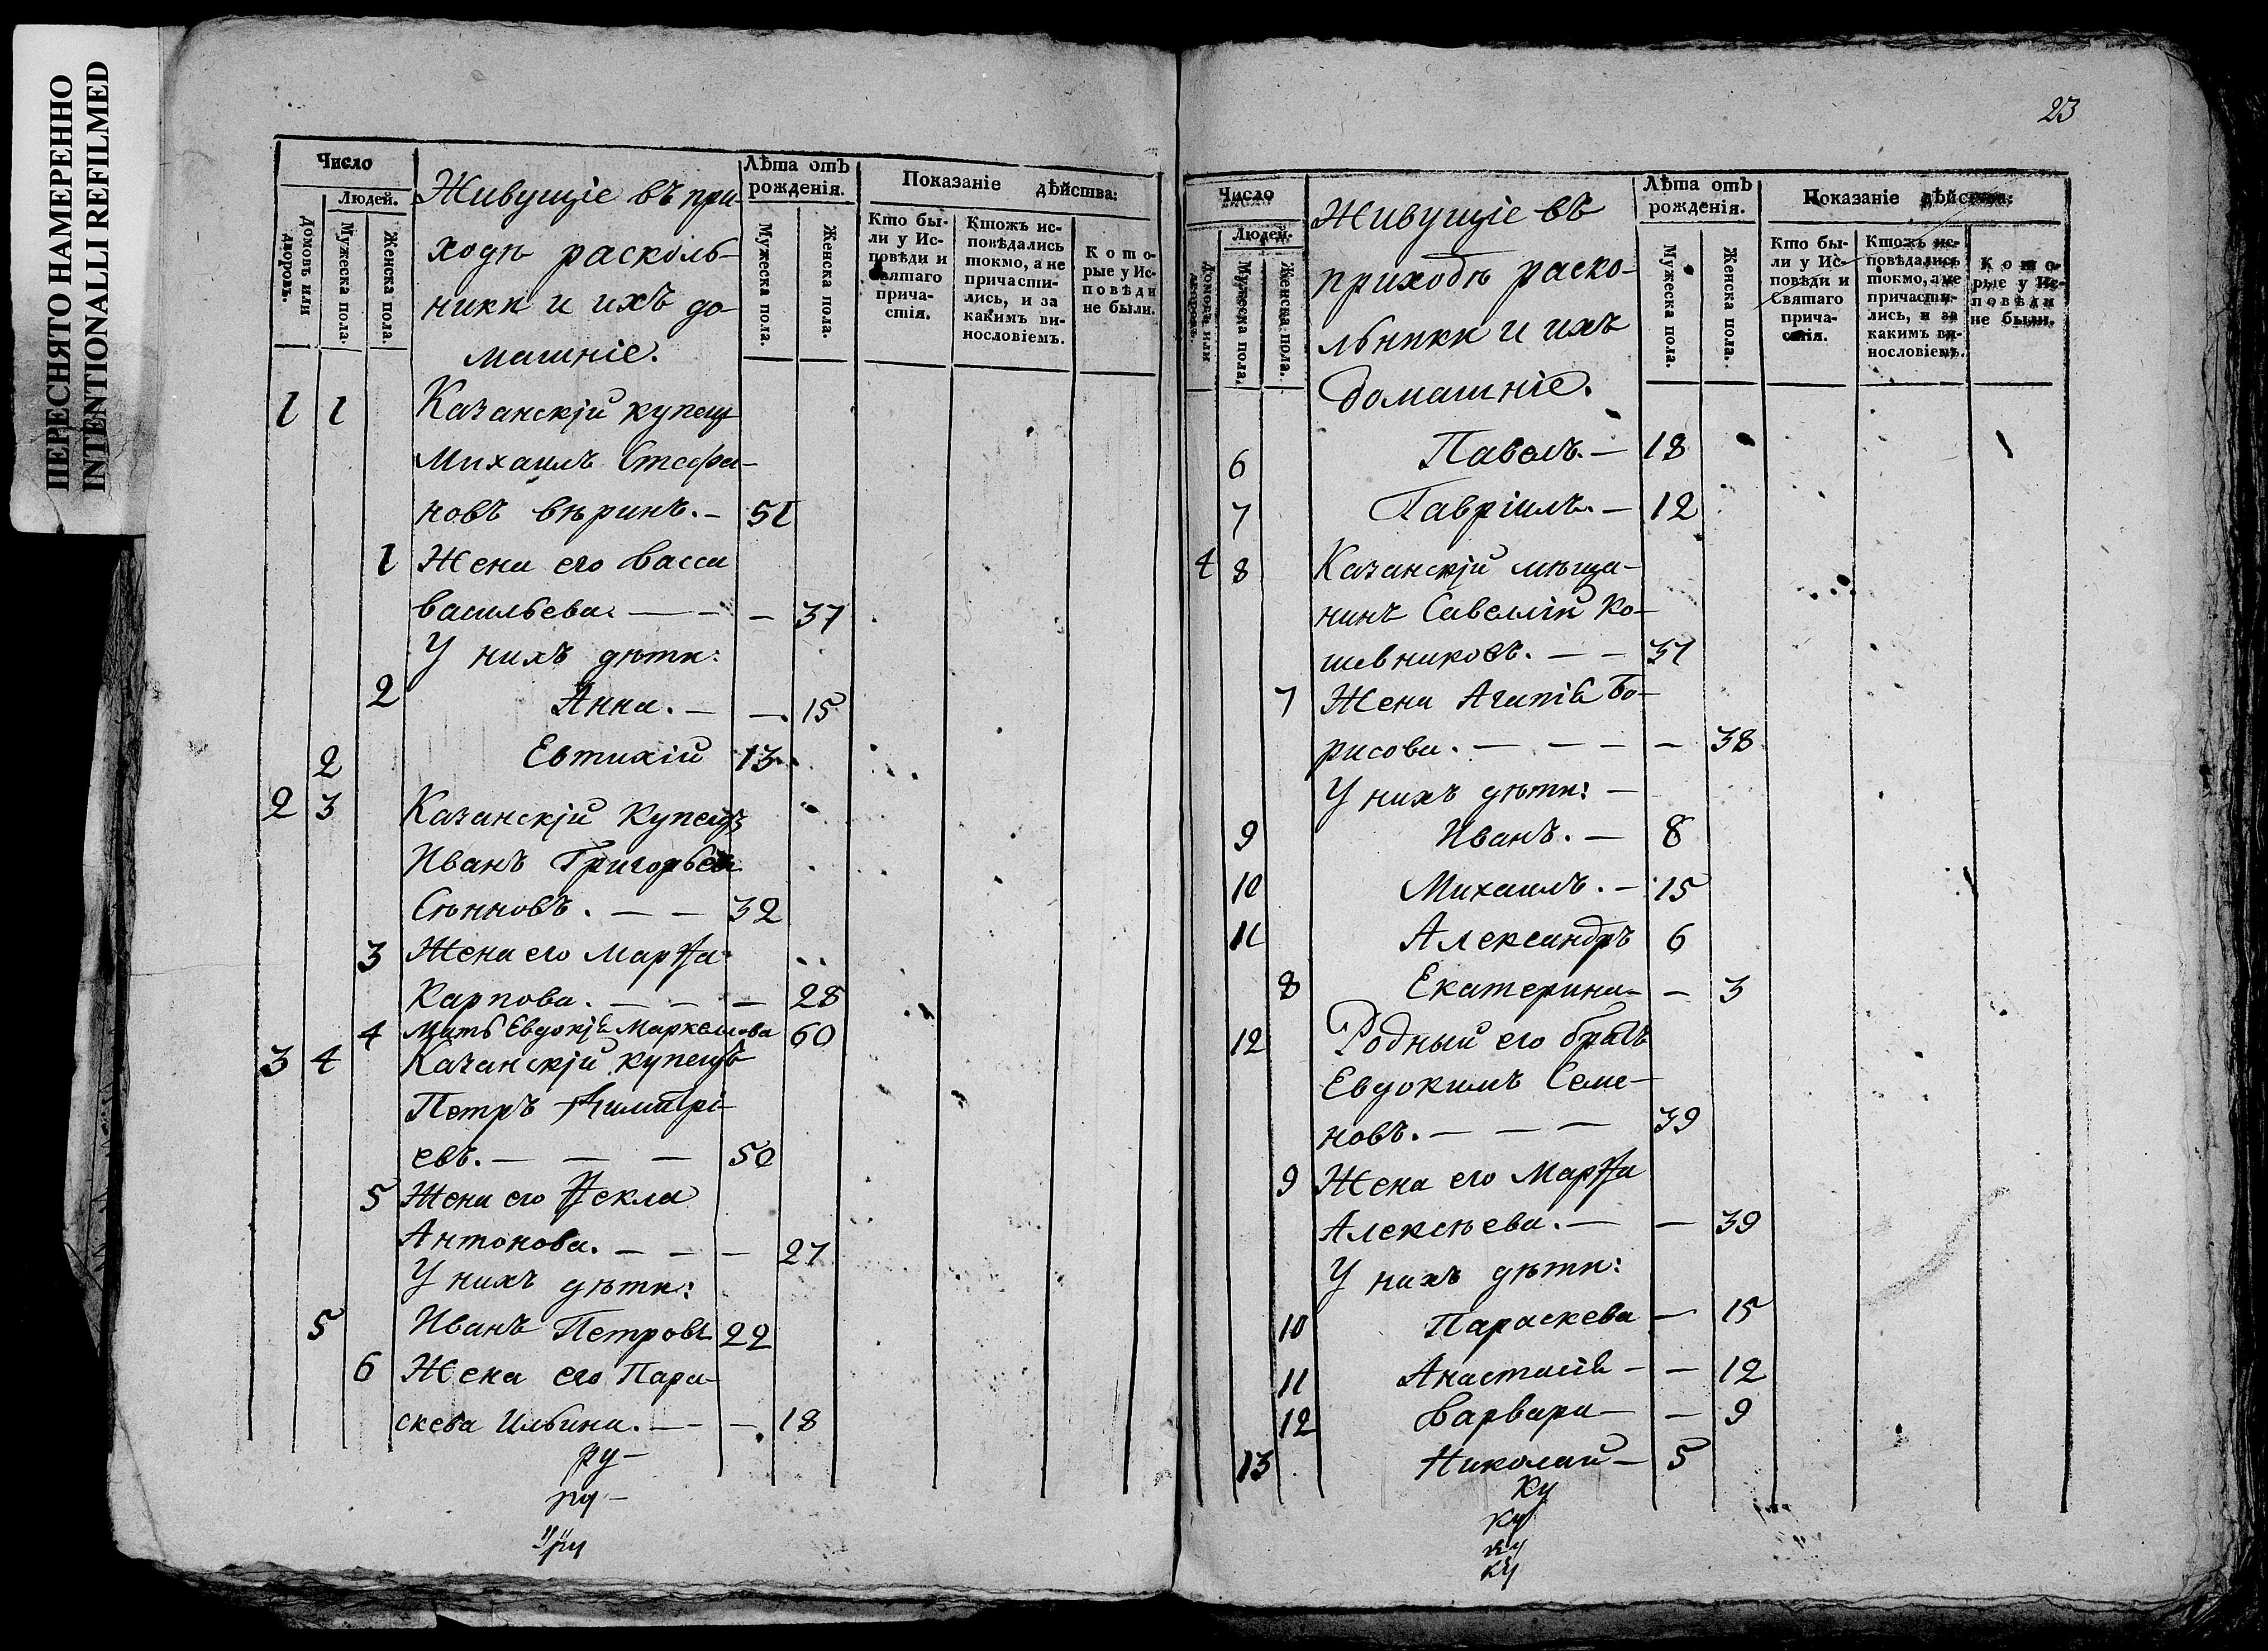 ПЕРЕСНЯТО НАМЕРЕННО
INTENTIONALLI REFILMED
Число
Людей.
Домовъ или дворовъ.
Мужеска пола.
Женска пола.
Живущіе въ при-
ходѣ расколь-
ники и ихъ до-
машніе.
Лѣта отъ рожденія.
Мужеска пола.
Женска пола.
Показаніе дѣйства:
Кто бы-
ли у Ис-
повѣди и
Святаго
прича-
стія.
Ктожъ ис-
повѣдались
токмо, а не
причасти-
лись, и за
какимъ ви-
нословіемъ.
Кото-
рые у Ис-
повѣди
не были.
1 1 Казанскій купецъ
Михаилъ Стефа-
новъ Вѣринъ. — 51
1 Жена его Васса
Васильева. — — — 37
У нихъ дѣти:
2 Анна. — — 15
2 Евтихій 13
2 3 Казанскій Купецъ
Иванъ Григорьевъ
Сѣнновъ. — — 32
3 Жена его Марѳа
Карпова. — — — 28
4 Мать Евдокія Маркелова 60
3 4 Казанскій купецъ
Петръ Димитрі-
евъ. — — — 50
5 Жена его Ѳекла
Антонова. — — — 27
У нихъ дѣти:
5 Иванъ Петровъ 22
6 Жена его Пара-
скева Ильина. — — — 18
ру-
ру-
ру
23
Число
Людей.
Домовъ или дворовъ.
Мужеска пола.
Женска пола.
Живущіе въ
приходѣ раско-
льники и ихъ
домашніе.
Лѣта отъ рожденія.
Мужеска пола.
Женска пола.
Показаніе дѣйства:
Кто бы-
ли у Ис-
повѣди и
Святаго
прича-
стія.
Ктожъ ис-
повѣдались
токмо, а не
причасти-
лись, и за
какимъ ви-
нословіемъ.
Кото-
рые у Ис-
повѣди
не были.
6 Павелъ. — 18
7 Гавріилъ. — 12
4 8 Казанскій мѣща-
нинъ Савеллій Ко-
шевниковъ. — — 37
7 Жена Агапія Бо-
рисова. — — — — 38
У нихъ дѣти: —
9 Иванъ. — 8
10 Михаилъ. — 15
11 Александръ 6
8 Екатерина — — 3
12 Родный его братъ
Евдокимъ Семе-
новъ. — — — 39
9 Жена его Марѳа
Алексѣева. — — 39
У нихъ дѣти:
10 Параскева — 15
11 Анастасія — — 12
12 Варвара — — 9
13 Николай — 5
ку
ку
ку
ку